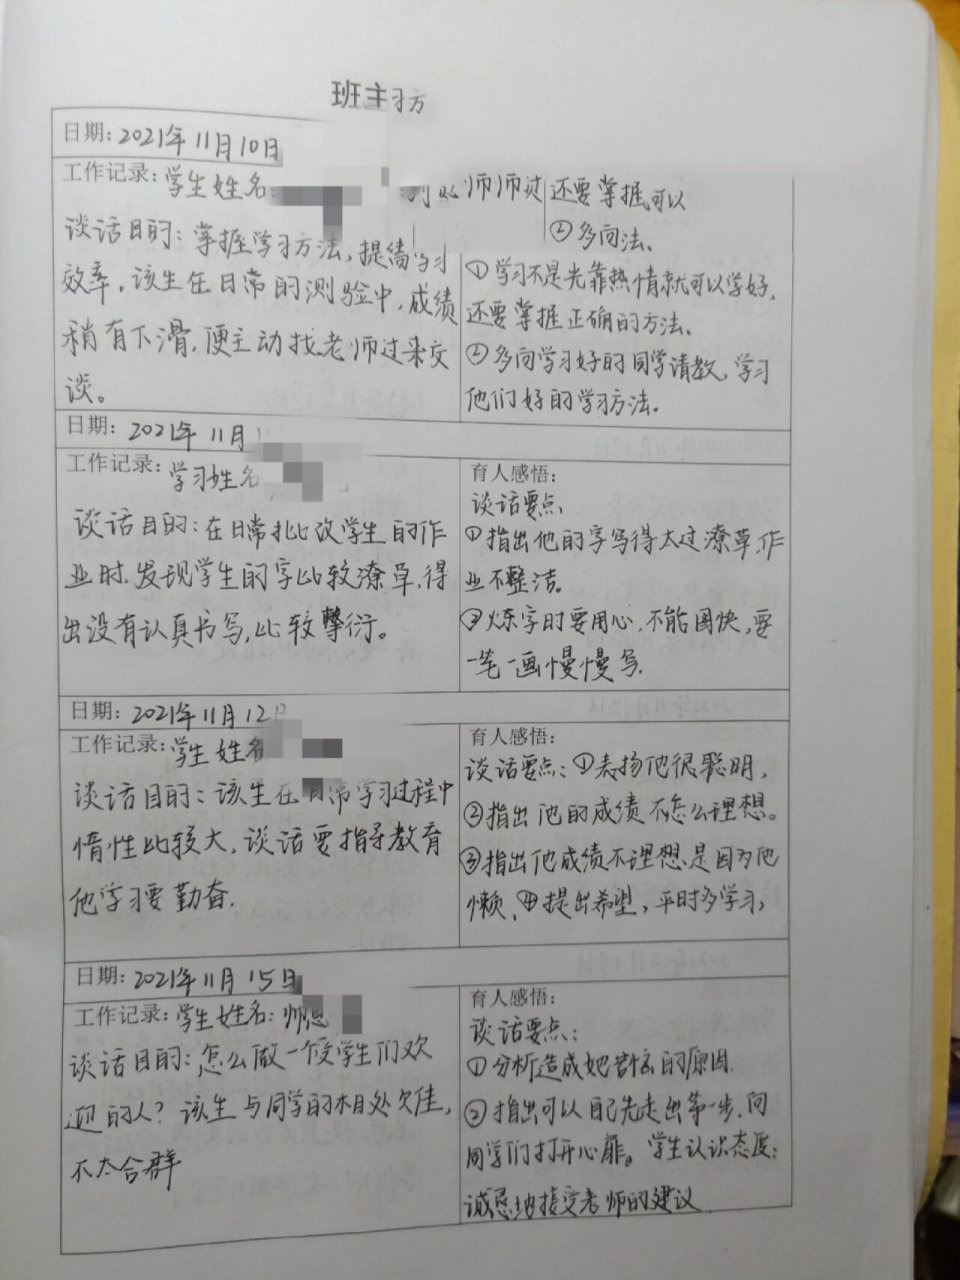 班主
日期：2021年11月10日
工作记录：学生姓名：
谈话目的：掌握学习方法，提
效率。该生在日常的测验中，成绩
稍有下滑，便主动找老师过来交
谈。
师师过
还要掌握可以
②多向法。
①学习不是光靠热情就可以学好，
还要掌握正确的方法。
②多向学习好的同学请教，学习
他们好的学习方法。
日期：2021年11月
工作记录：学习姓名
谈话目的：在日常批改学生的作
业时，发现学生的字比较潦草，得
出没有认真书写，比较衍。
育人感悟：
谈话要点
①指出他的字写得太过潦草，作
业不整洁。
②炼字时要用心，不能图快，要
一笔一画慢慢写.
日期：2021年11月12日
工作记录：学生姓名
谈话目的：该生在日常学习过程中
惰性比较大，谈话要指导教育
他学习要勤奋.
育人感悟：
谈话要点：①表扬他很聪明，
②指出他的成绩不怎么理想。
③指出他成绩不理想是因为他
懒，④提出希望，平时多学习，
日期：2021年11月15日
工作记录：学生姓名：
谈话目的：怎么做一个受学生们欢
迎的人？该生与同学的相处欠佳，
不太合群
育人感悟：
谈话要点：
①分析造成她苦恼的原因.
②指出可以自己先走出第一步，向
同学们打开心扉。学生认识态度：
诚恳地接受老师的建议